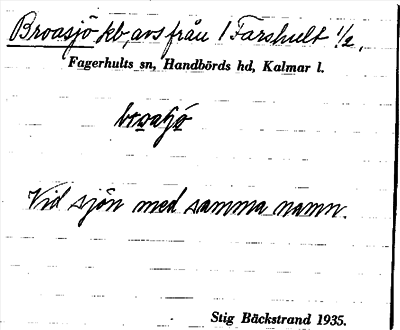 Broasjö kb, avs från 1 Farshult 1/2,
Fagerhults sn, Handbörds hd, Kalmar l.
Vid sjön med samma namn.
Stig Bäckstrand 1935.